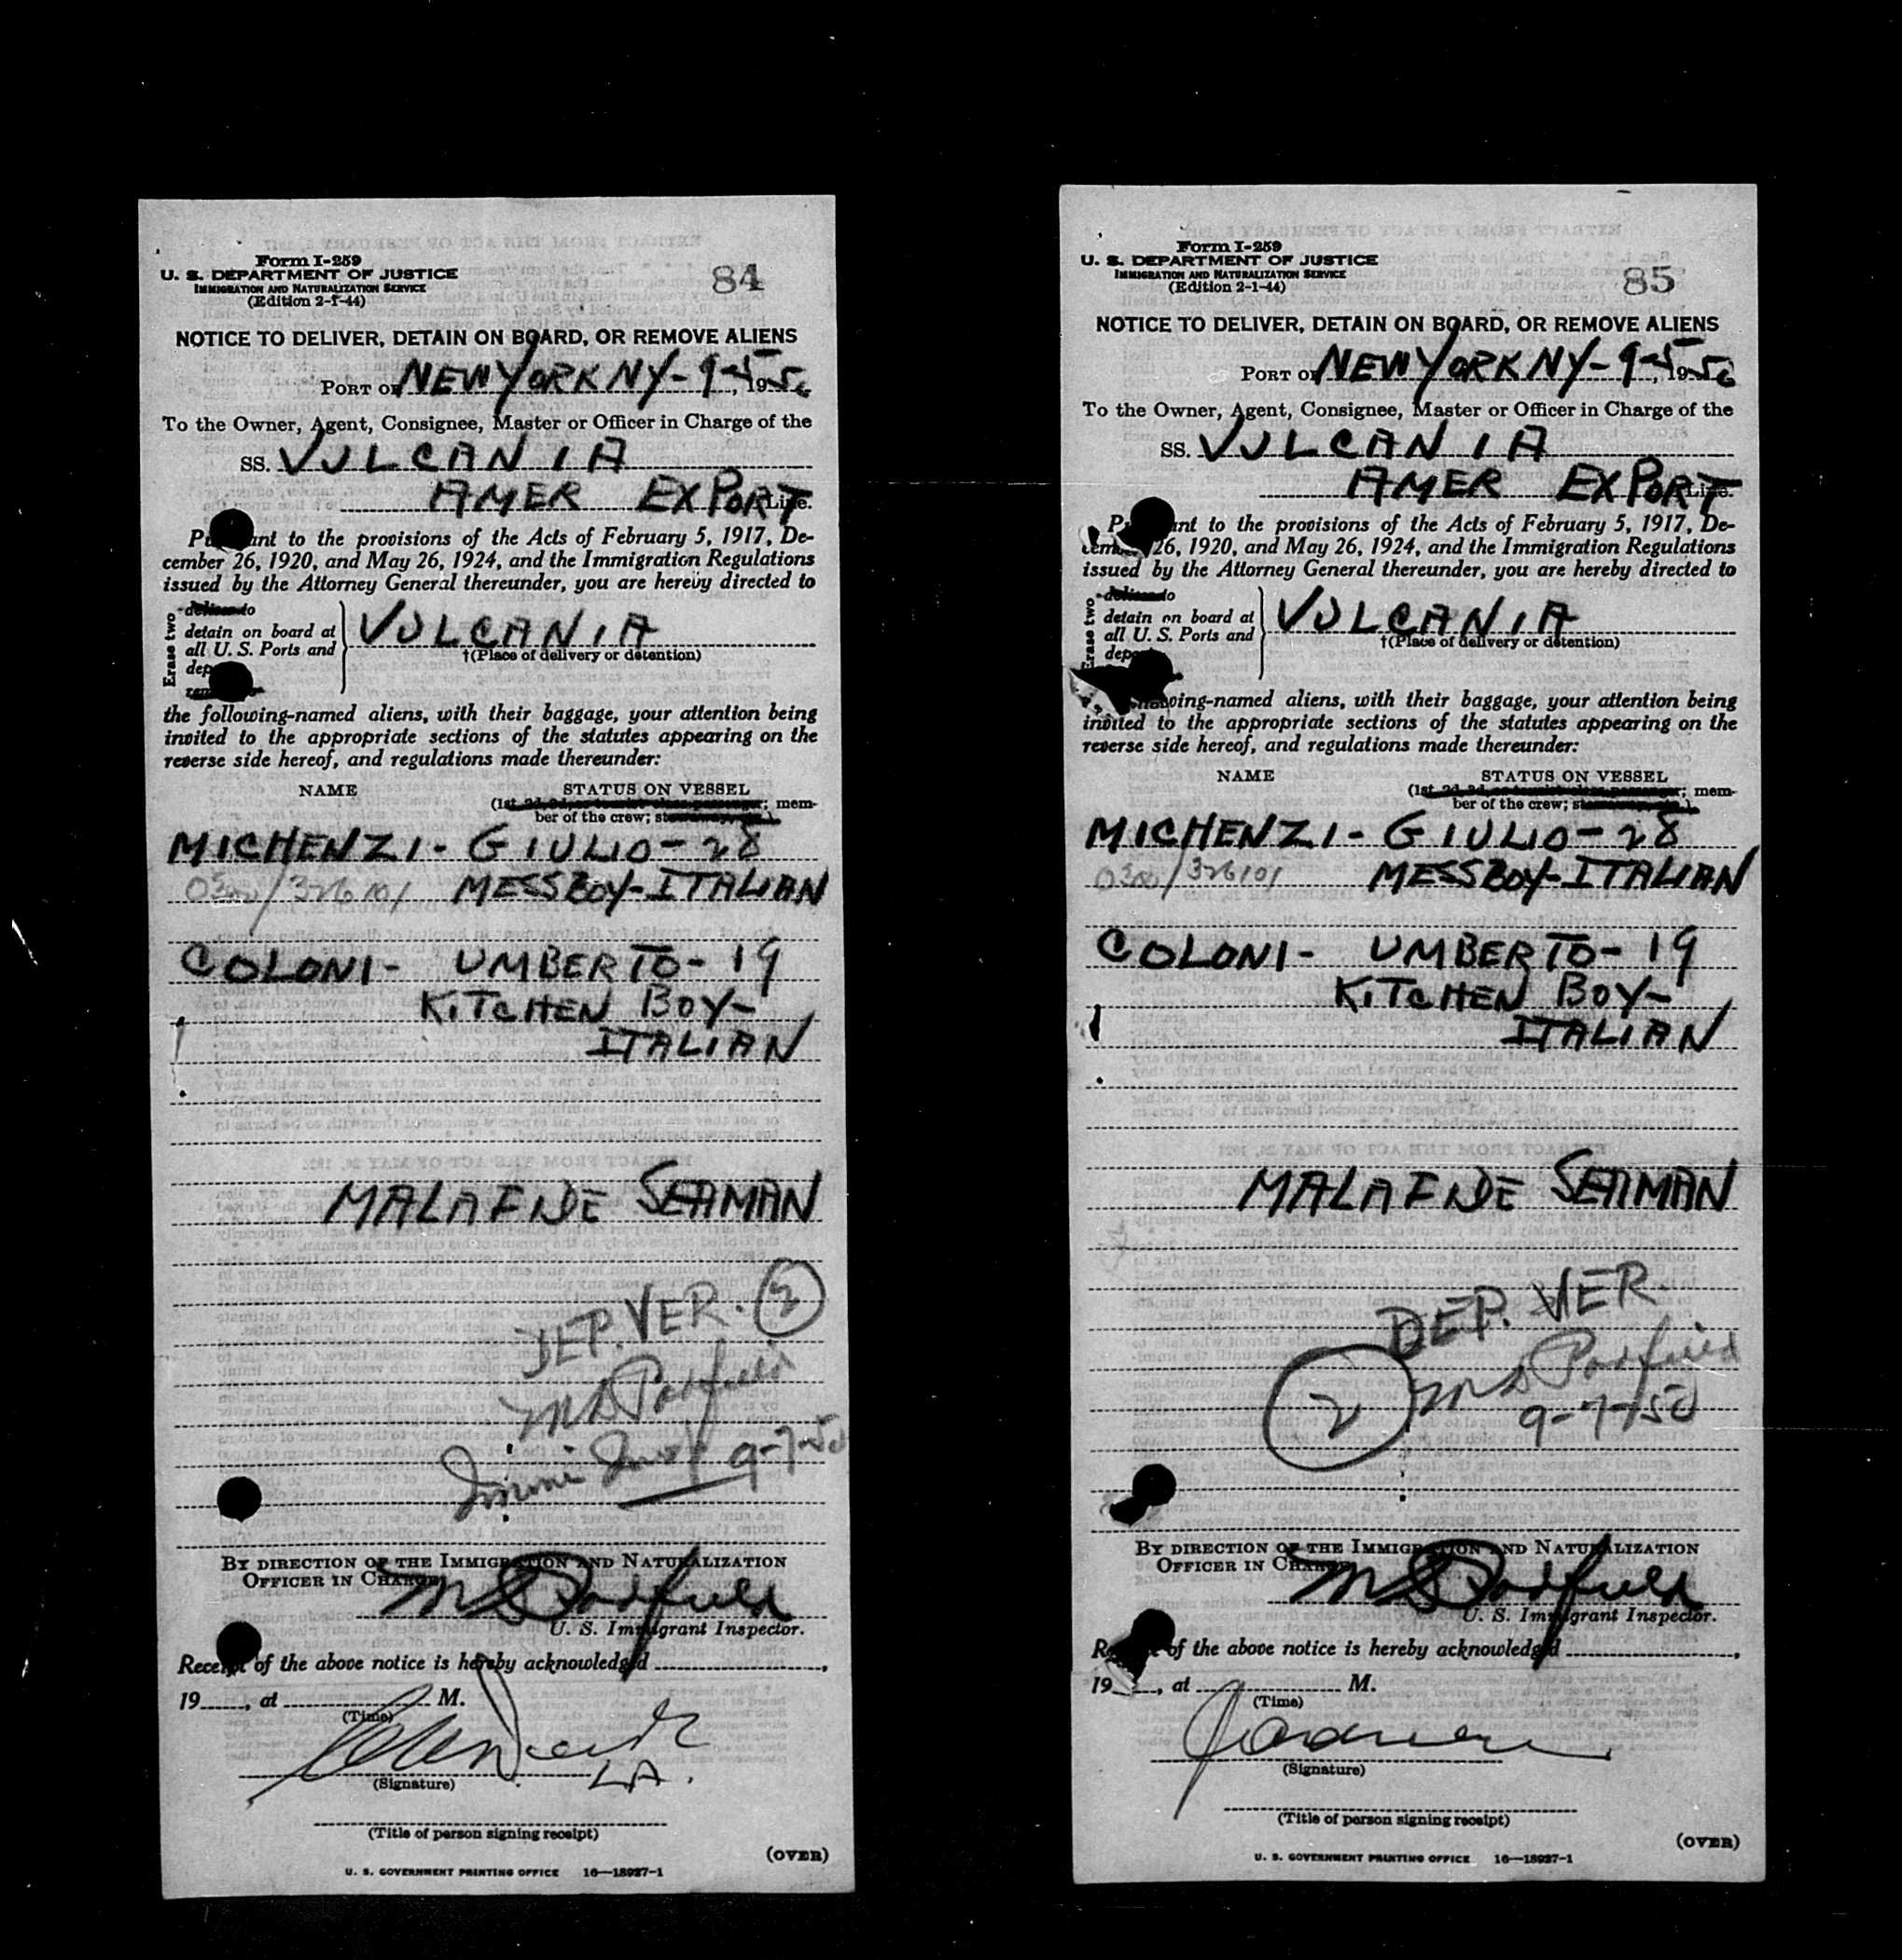 Form I-259
U. S. DEPARTMENT OF JUSTICE
IMMIGRATION AND NATURALIZATION SERVICE
(Edition 2-1-44)
84
NOTICE TO DELIVER, DETAIN ON BOARD, OR REMOVE ALIENS
PORT OF NEW YORK NY - 9-5-, 1950
To the Owner, Agent, Consignee, Master or Officer in Charge of the
SS. VULCANIA
AMER EXPORT Line.
Pursuant to the provisions of the Acts of February 5, 1917, De-
cember 26, 1920, and May 26, 1924, and the Immigration Regulations
issued by the Attorney General thereunder, you are hereby directed to
Erase two
to
detain on board at
all U. S. Ports and
dep
VULCANIA
†(Place of delivery or detention)
the following-named aliens, with their baggage, your attention being
invited to the appropriate sections of the statutes appearing on the
reverse side hereof, and regulations made thereunder:
NAME STATUS ON VESSEL
(1st, 2d, 3d, or tourist class passenger; mem-
ber of the crew; stowaway, etc.)
MICHENZI - GIULIO - 28
0300/326101 MESSBOY - ITALIAN
COLONI - UMBERTO - 19
KITCHEN BOY -
ITALIAN
MALA FIDE SEAMAN
DEP. VER. 2
M S Padfield
Immi Insp 9-7-50
BY DIRECTION OF THE IMMIGRATION AND NATURALIZATION
OFFICER IN CHARGE
M S Padfield
U. S. Immigrant Inspector.
Receipt of the above notice is hereby acknowledged ,
19 , at M.
(Time)
(Signature)
(Title of person signing receipt)
(OVER)
U. S. GOVERNMENT PRINTING OFFICE 16—18927-1
Form I-259
U. S. DEPARTMENT OF JUSTICE
IMMIGRATION AND NATURALIZATION SERVICE
(Edition 2-1-44)
85
NOTICE TO DELIVER, DETAIN ON BOARD, OR REMOVE ALIENS
PORT OF NEW YORK NY - 9-5-, 1950
To the Owner, Agent, Consignee, Master or Officer in Charge of the
SS. VULCANIA
AMER EXPORT Line.
Pursuant to the provisions of the Acts of February 5, 1917, De-
cember 26, 1920, and May 26, 1924, and the Immigration Regulations
issued by the Attorney General thereunder, you are hereby directed to
Erase two
to
detain on board at
all U. S. Ports and
dep
VULCANIA
†(Place of delivery or detention)
the following-named aliens, with their baggage, your attention being
invited to the appropriate sections of the statutes appearing on the
reverse side hereof, and regulations made thereunder:
NAME STATUS ON VESSEL
(1st, 2d, 3d, or tourist class passenger; mem-
ber of the crew; stowaway, etc.)
MICHENZI - GIULIO - 28
0300/326101 MESSBOY - ITALIAN
COLONI - UMBERTO - 19
KITCHEN BOY -
ITALIAN
MALA FIDE SEAMAN
DEP. VER.
M S Padfield
2 9-7-50
BY DIRECTION OF THE IMMIGRATION AND NATURALIZATION
OFFICER IN CHARGE
M S Padfield
U. S. Immigrant Inspector.
Receipt of the above notice is hereby acknowledged ,
19 , at M.
(Time)
(Signature)
(Title of person signing receipt)
(OVER)
U. S. GOVERNMENT PRINTING OFFICE 16—18927-1